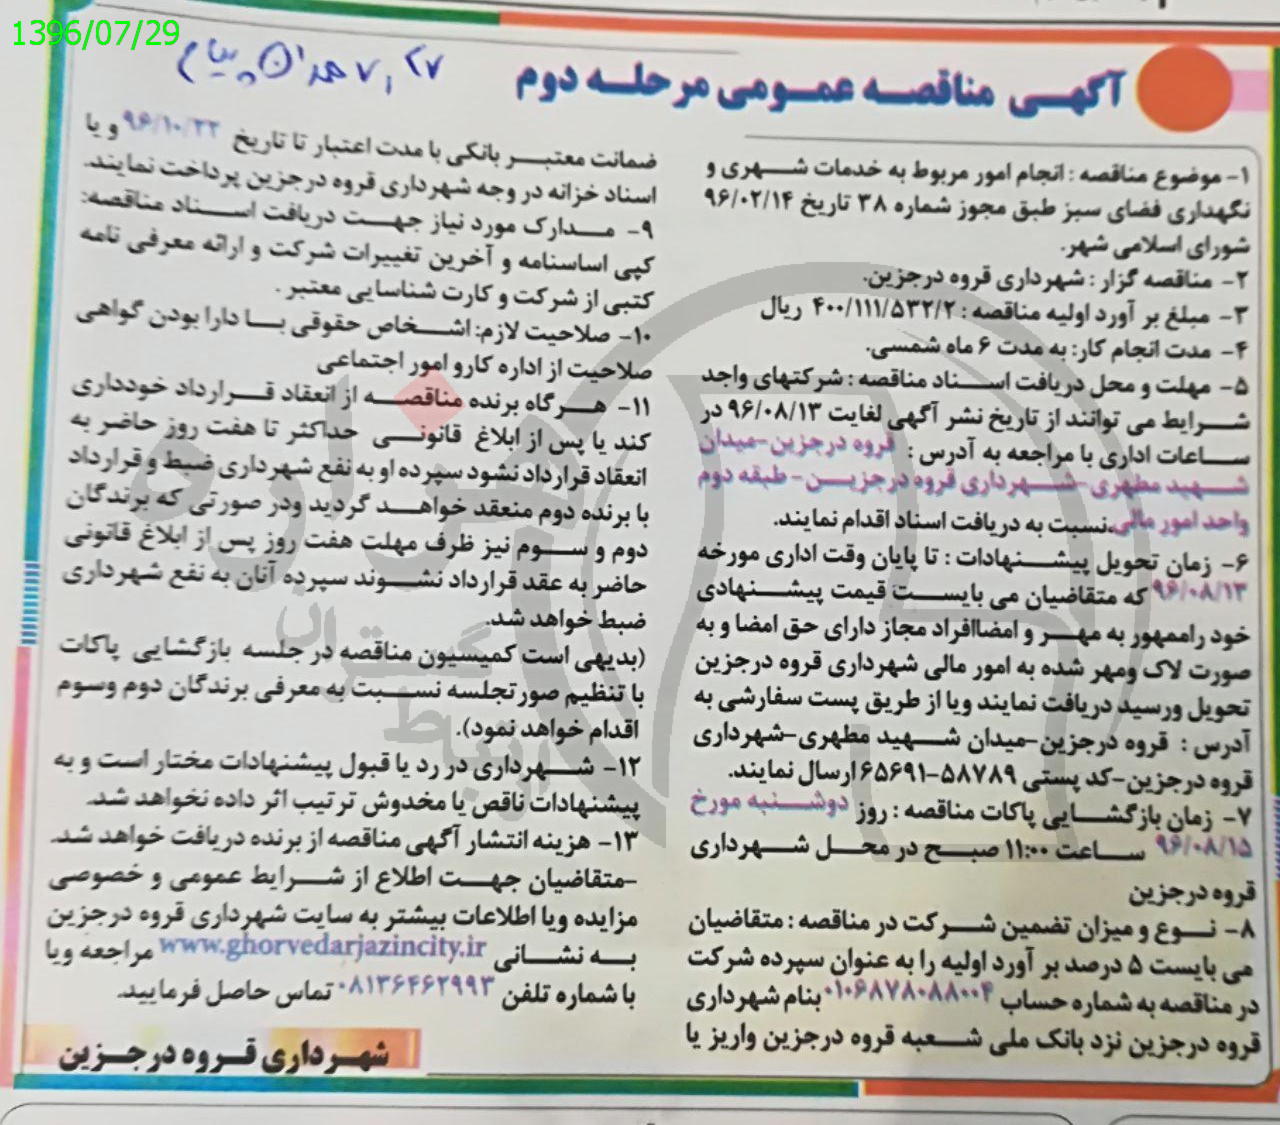 1396/07/29
آگهی مناقصه عمومی مرحله دوم
۱- موضوع مناقصه : انجام امور مربوط به خدمات شهری و
نگهداری فضای سبز طبق مجوز شماره ۳۸ تاریخ ۹۶/۰۲/۱۴
شورای اسلامی شهر.
۲- مناقصه گزار : شهرداری قروه درجزین.
۳- مبلغ بر آورد اولیه مناقصه : ۴۰۰/۱۱۱/۵۳۲/۲ ریال
۴- مدت انجام کار: به مدت ۶ ماه شمسی.
۵- مهلت و محل دریافت اسناد مناقصه : شرکتهای واجد
شرایط می توانند از تاریخ نشر آگهی لغایت ۹۶/۰۸/۱۳ در
ساعات اداری با مراجعه به آدرس : قروه درجزین-میدان
شهید مطهری-شهرداری قروه درجزین- طبقه دوم
واحد امور مالی،نسبت به دریافت اسناد اقدام نمایند.
۶- زمان تحویل پیشنهادات : تا پایان وقت اداری مورخه
۹۶/۰۸/۱۳ که متقاضیان می بایست قیمت پیشنهادی
خود راممهور به مهر و امضاافراد مجاز دارای حق امضا و به
صورت لاک ومهر شده به امور مالی شهرداری قروه درجزین
تحویل ورسید دریافت نمایند ویا از طریق پست سفارشی به
آدرس : قروه درجزین-میدان شهید مطهری-شهرداری
قروه درجزین-کد پستی ۵۸۷۸۹-۶۵۶۹۱ ارسال نمایند.
۷- زمان بازگشایی پاکات مناقصه : روز دوشنبه مورخ
۹۶/۰۸/۱۵ ساعت ۱۱:۰۰ صبح در محل شهرداری
قروه درجزین
۸- نوع و میزان تضمین شرکت در مناقصه : متقاضیان
می بایست ۵ درصد بر آورد اولیه را به عنوان سپرده شرکت
در مناقصه به شماره حساب ۰۱۰۶۸۷۸۰۸۸۰۰۴ بنام شهرداری
قروه درجزین نزد بانک ملی شعبه قروه درجزین واریز یا
ضمانت معتبر بانکی با مدت اعتبار تا تاریخ ۹۶/۱۰/۲۲ و یا
اسناد خزانه در وجه شهرداری قروه درجزین پرداخت نمایند.
۹- مدارک مورد نیاز جهت دریافت اسناد مناقصه:
کپی اساسنامه و آخرین تغییرات شرکت و ارائه معرفی نامه
کتبی از شرکت و کارت شناسایی معتبر .
۱۰- صلاحیت لازم: اشخاص حقوقی با دارا بودن گواهی
صلاحیت از اداره کارو امور اجتماعی
۱۱- هرگاه برنده مناقصه از انعقاد قرارداد خودداری
کند یا پس از ابلاغ قانونی حداکثر تا هفت روز حاضر به
انعقاد قرارداد نشود سپرده او به نفع شهرداری ضبط و قرارداد
با برنده دوم منعقد خواهد گردید ودر صورتی که برندگان
دوم و سوم نیز ظرف مهلت هفت روز پس از ابلاغ قانونی
حاضر به عقد قرارداد نشوند سپرده آنان به نفع شهرداری
ضبط خواهد شد.
(بدیهی است کمیسیون مناقصه در جلسه بازگشایی پاکات
با تنظیم صورتجلسه نسبت به معرفی برندگان دوم وسوم
اقدام خواهد نمود).
۱۲- شهرداری در رد یا قبول پیشنهادات مختار است و به
پیشنهادات ناقص یا مخدوش ترتیب اثر داده نخواهد شد.
۱۳- هزینه انتشار آگهی مناقصه از برنده دریافت خواهد شد.
-متقاضیان جهت اطلاع از شرایط عمومی و خصوصی
مزایده ویا اطلاعات بیشتر به سایت شهرداری قروه درجزین
به نشانی www.ghorvedarjazincity.ir مراجعه ویا
با شماره تلفن ۰۸۱۳۶۴۶۲۹۹۳ تماس حاصل فرمایید.
شهرداری قروه درجزین